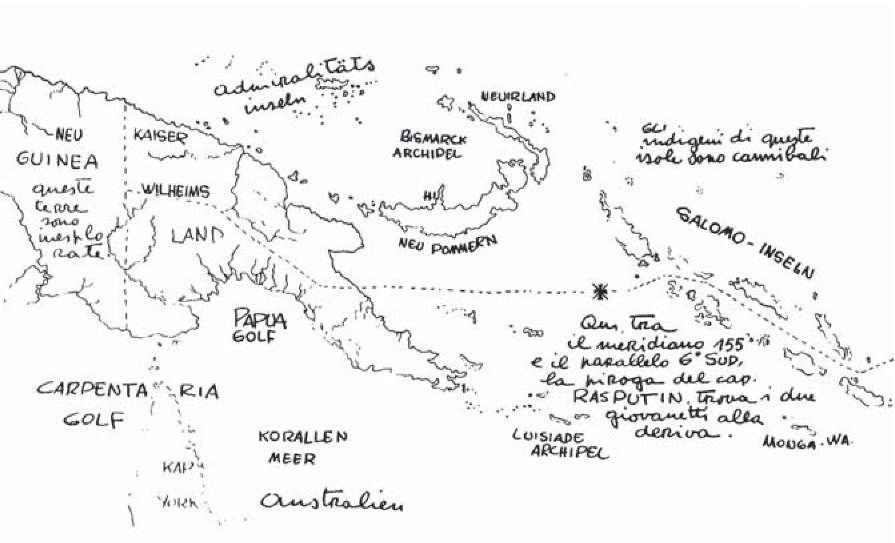 admiralitäts
inseln
NEUIRLAND
NEU
GUINEA
queste
terre
sono
inesplo
rate
KAISER
WILHEIMS
LAND
BISMARCK
ARCHIPEL
NEU POMMERN
Gli
indigeni di queste
isole sono cannibali
SALOMO-INSELN
PAPUA
GOLF
Qui, tra
il meridiano 155°
e il parallelo 6° SUD,
la piroga del cap.
RASPUTIN, trova i due
giovanetti alla
deriva.
CARPENTARIA
GOLF
KORALLEN
MEER
LUISIADE
ARCHIPEL
MONGA-WA.
KAP
YORK
Australien